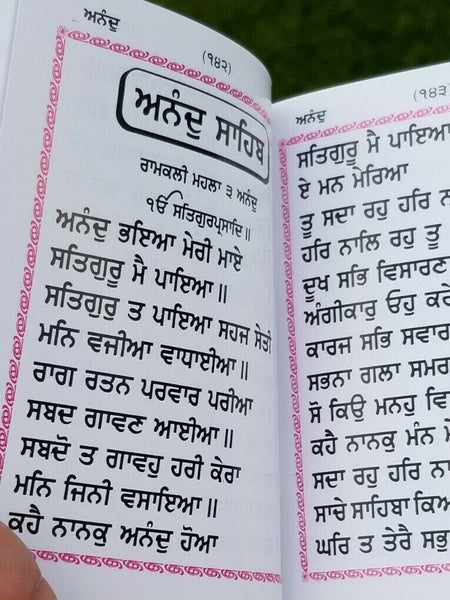 ਅਨੰਦੁ
(੧੪੨)
ਅਨੰਦੁ ਸਾਹਿਬ
ਰਾਮਕਲੀ ਮਹਲਾ ੩ ਅਨੰਦੁ
ੴ ਸਤਿਗੁਰਪ੍ਰਸਾਦਿ॥
ਅਨੰਦੁ ਭਇਆ ਮੇਰੀ ਮਾਏ
ਸਤਿਗੁਰੂ ਮੈ ਪਾਇਆ॥
ਸਤਿਗੁਰੁ ਤ ਪਾਇਆ ਸਹਜ ਸੇਤੀ
ਮਨਿ ਵਜੀਆ ਵਾਧਾਈਆ॥
ਰਾਗ ਰਤਨ ਪਰਵਾਰ ਪਰੀਆ
ਸਬਦ ਗਾਵਣ ਆਈਆ॥
ਸਬਦੋ ਤ ਗਾਵਹੁ ਹਰੀ ਕੇਰਾ
ਮਨਿ ਜਿਨੀ ਵਸਾਇਆ॥
ਕਹੈ ਨਾਨਕੁ ਅਨੰਦੁ ਹੋਆ
ਅਨੰਦੁ
(੧੪੩
ਸਤਿਗੁਰੂ ਮੈ ਪਾਇਆ
ਏ ਮਨ ਮੇਰਿਆ
ਤੂ ਸਦਾ ਰਹੁ ਹਰਿ
ਹਰਿ ਨਾਲਿ ਰਹੁ ਤੂ
ਦੂਖ ਸਭਿ ਵਿਸਾਰਣ
ਅੰਗੀਕਾਰੁ ਓਹੁ ਕਰੇ
ਕਾਰਜ ਸਭਿ ਸਵਾਰ
ਸਭਨਾ ਗਲਾ ਸਮਰ
ਸੋ ਕਿਉ ਮਨਹੁ ਵਿ
ਕਹੈ ਨਾਨਕੁ ਮੰਨ
ਸਦਾ ਰਹੁ ਹਰਿ
ਸਾਚੇ ਸਾਹਿਬਾ ਕਿਆ
ਘਰਿ ਤ ਤੇਰੈ ਸਭੁ